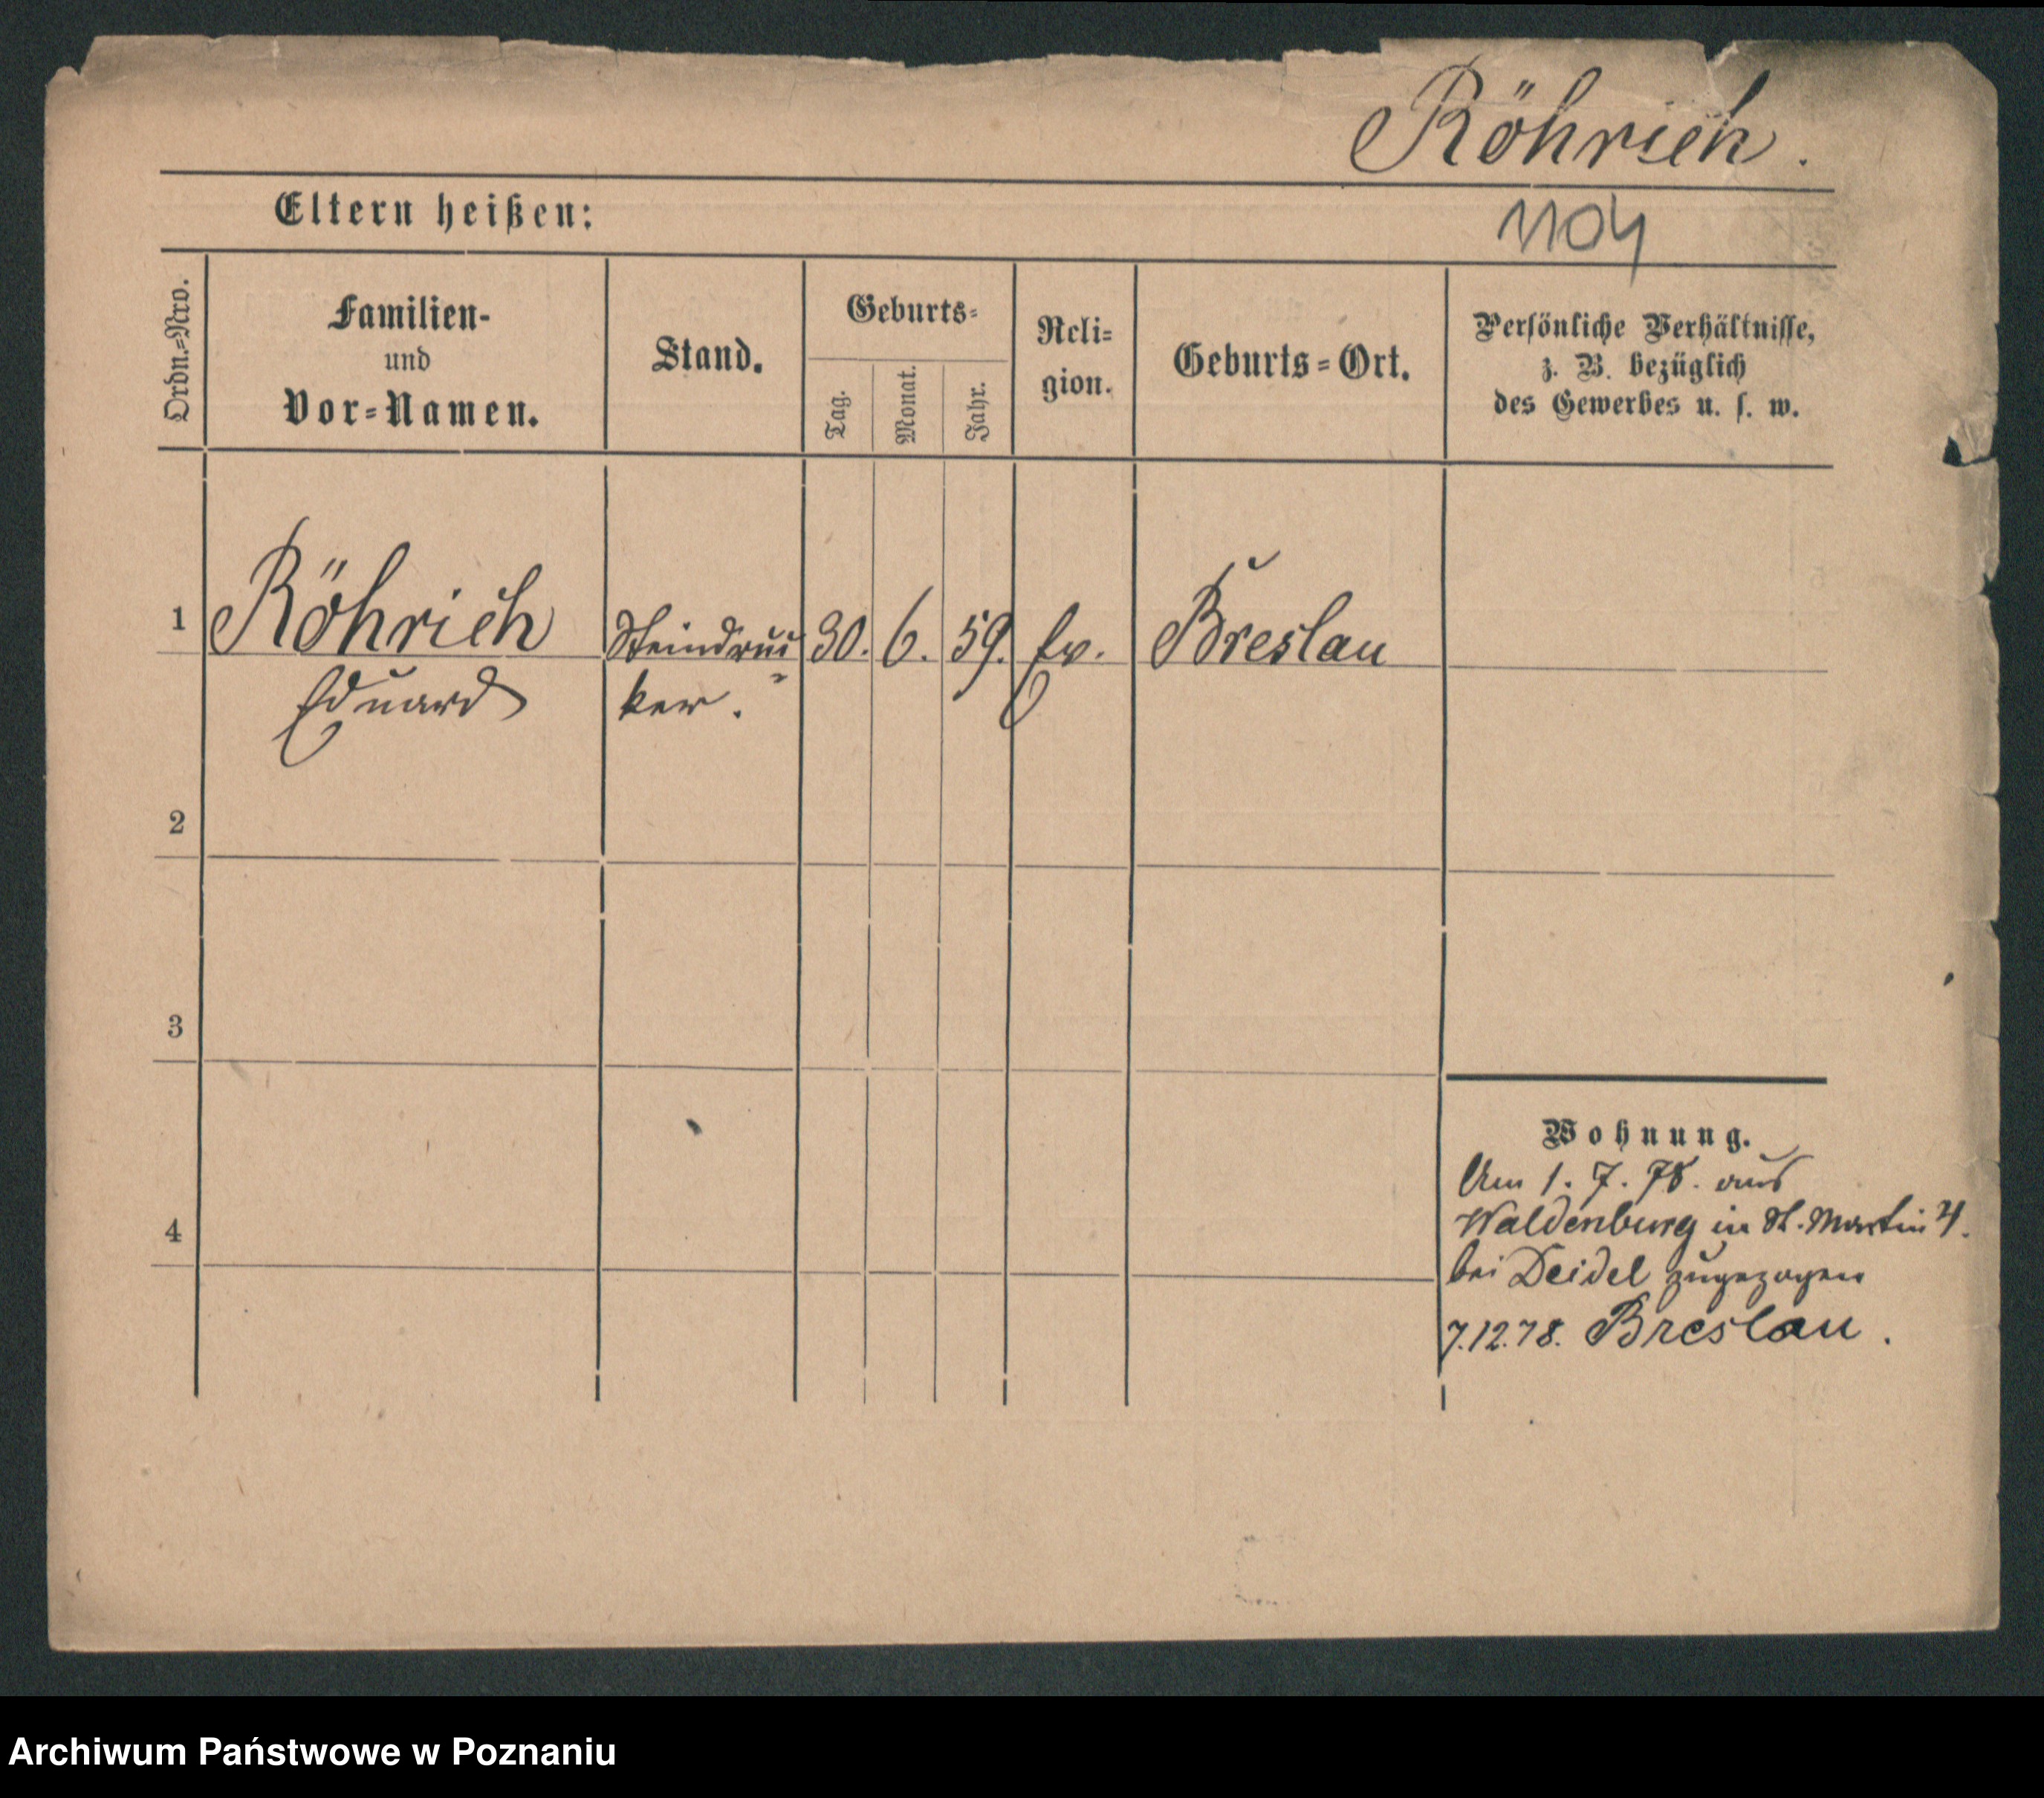 Röhrich.
Eltern heißen:
1104
Ordn.=Nro.
Familien-
und
Vor=Namen.
Stand.
Geburts=
Tag.
Monat.
Jahr.
Reli=
gion.
Geburts=Ort.
Persönliche Verhältnisse,
z. B. bezüglich
des Gewerbes u. s. w.
1 Röhrich Steindruc 30. 6. 59. Ev. Breslau
Eduard ker.
2
3
4
Wohnung.
Am 1. 7. 78. aus
Waldenburg in St. Martin 4.
bei Deidel zugezogen
7.12.78. Breslau.
Archiwum Państwowe w Poznaniu